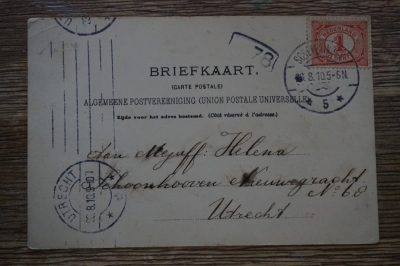 78
NEDERLAND
1
BRIEFKAART.
(CARTE POSTALE)
8.10.5-6N.
ALGEMEENE POSTVEREENIGING (UNION POSTALE UNIVERSELLE)
5
Zijde voor het adres bestemd. (Côté réservé à l'adresse.)
Aan Mejuff: Helena
Schoonhooven Nieuwegracht
No 68
Utrecht
UTRECHT
8.10.9-10